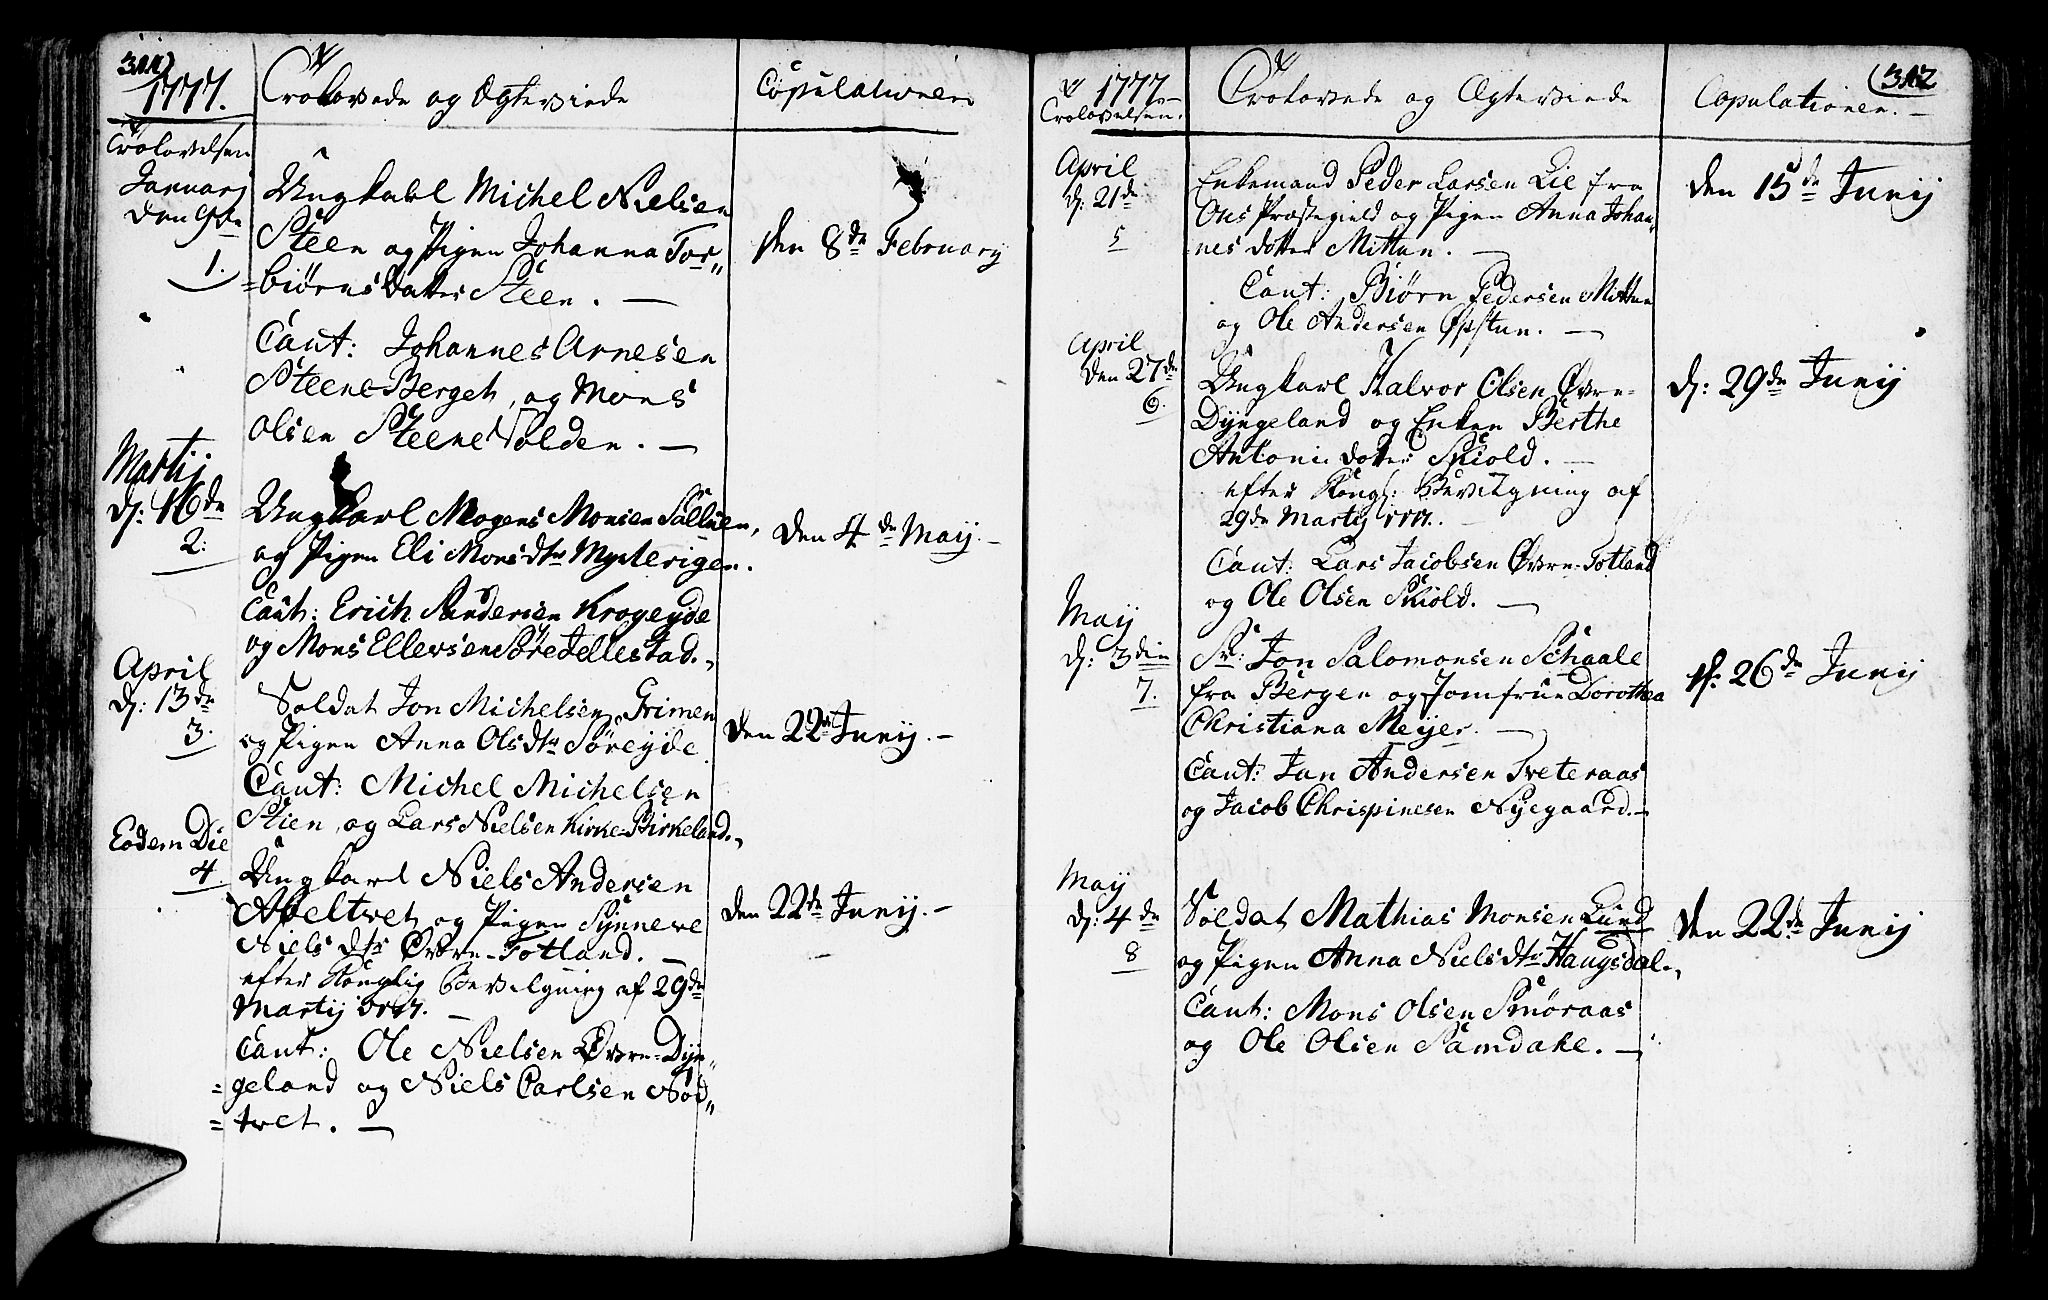 311)
1777.
Trolovede og Ægteviede
Copulationen
Trolovelsen
Januarj
den
1.
Ungkarl Michel Nielsen
Steen og Pigen Johanna Tor„
=biørns Datter Steen. —
den 8de February
Caut: Johannes Arnesen
SteeneBerget, og Mons
Olsen SteeneVolden. —
Martij
d: 16de
2.
Ungkarl Mogens Monsen Sælen,
og Pigen Eli Monsdtr Myrterigen.
den 4de Maij. —
Caut: Erich Andersen Krogeyde
og Mons Ellevsen SøreTellestad.,
April
d: 13de
3.
Soldat Jon Michelsen Grimen
og Pigen Anna Olsdtr Søreyde
den 22de Junij. —
Caut: Michel Michelsen
Stien, og Lars Nielsen Kirke-Birkeland.,
Eodem Die
4.
Ungkarl Niels Andersen
Apeltvet og Pigen Synneve
Niels dtr Øvre-Totland. —
den 22de Junij. —
efter Konglig Bevilgning af 29de
Martij 1777. —
Caut: Ole Nielsen Øvre-Dyn„
=geland og Niels Carlsen Nød„
=tvet. —
312
1777
Trolovelsen.
Trolovede og Ægteviede
Copulationen. —
April
d: 21de
5
Enkemand Peder Larsen Lie fra
Ous Præstegield og Pigen Anna Johan„
nes dotter Mittun. —
den 15de Junij
Caut: Biørn Pedersen Mittun
og Ole Andersen Øpstun. —
April
den 27de
6.
Ungkarl Halvor Olsen Øvre-
Dyngeland og Enken Berthe
Antoni dotter Skiold. —
d: 29de Junij
efter Kongl: Bevilgning af
29de Martij 1777. —
Caut: Lars Jacobsen Øvre-Totland
og Ole Olsen Skiold. —
Maij
d: 3die
7.
Sr: Jon Salomonsen Schaale
fra Bergen og Jomfrue Dorothea
Christiana Meijer. —
d: 26de Junij
Caut: Jan Andersen Tveteraas
og Jacob Chrispinesen Nyegaard. —
Maij
d: 4de
8
Soldat Mathias Monsen Lund
og Pigen Anna Nielsdtr Haugsdal.,
den 22de Junij
Caut: Mons Olsen Smøraas
og Ole Olsen Samdahl. —